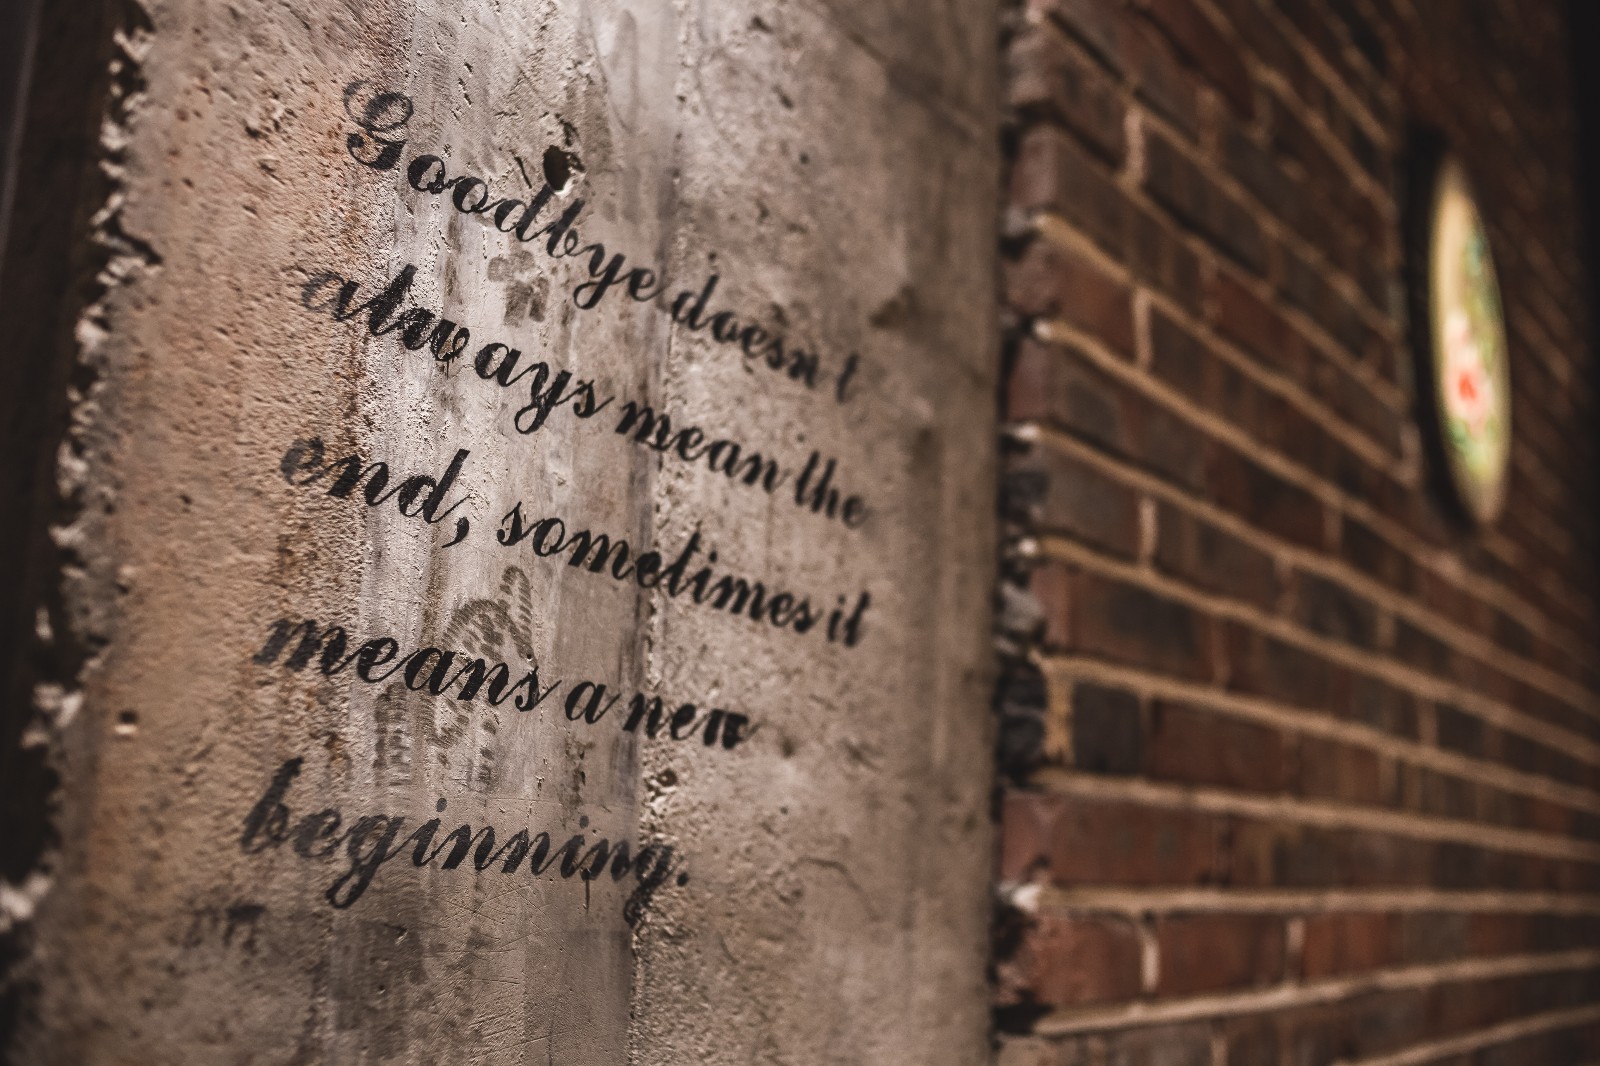 Goodbye doesn't
always mean the
end, sometimes it
means a new
beginning.